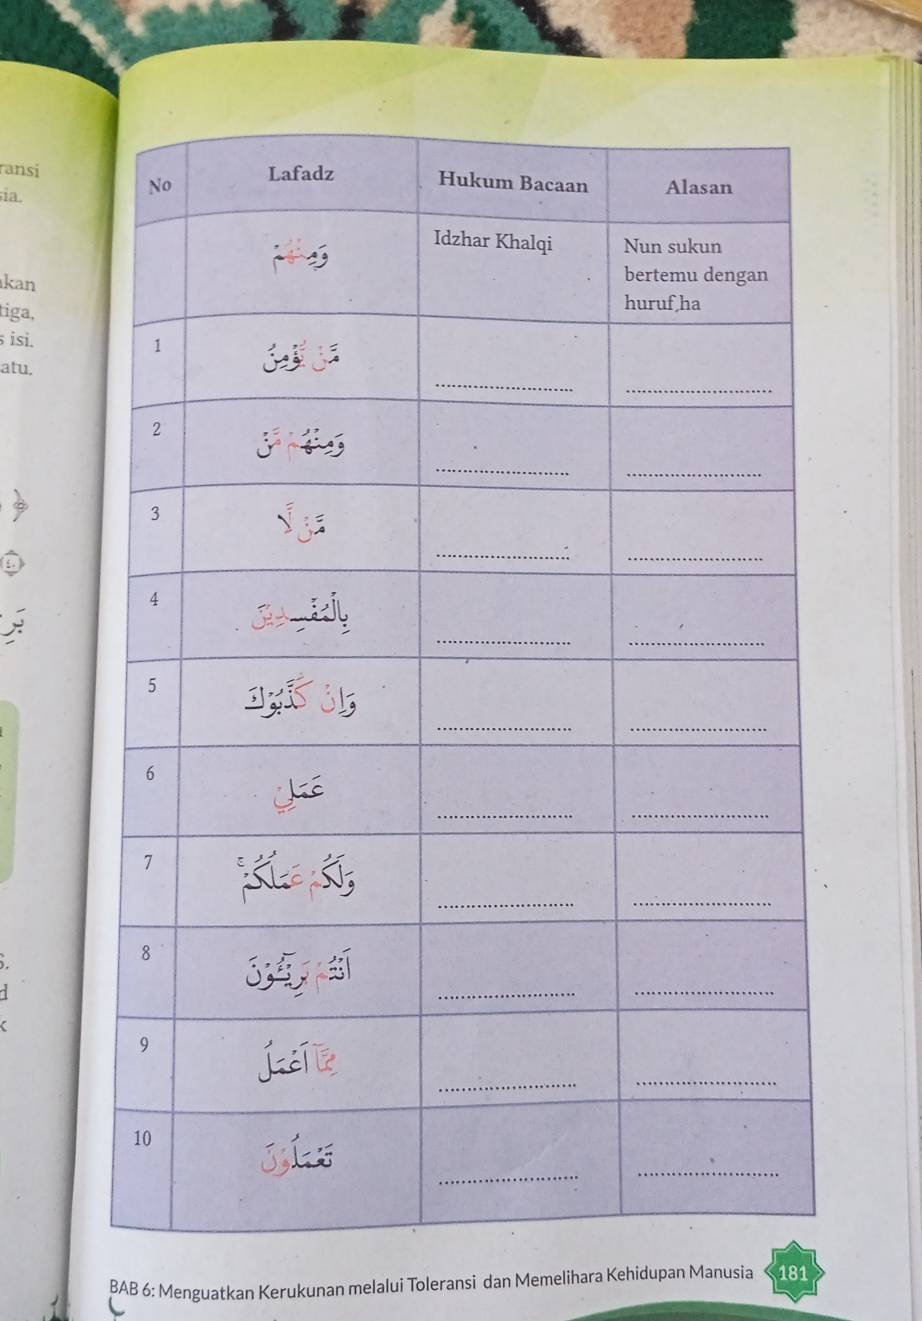 ransi
sia.
akan
tiga,
s isi.
atu.
No Lafadz Hukum Bacaan Alasan
وَمِنْهُمْ Idzhar Khalqi Nun sukun
bertemu dengan
huruf ha
1 مَّنْ يُّؤْمِنُ ........................ ........................
2 وَمِنْهُمْ مَّنْ ........................ ........................
3 مَّنْ لَّا ........................ ........................
4 بِالْمُفْسِدِيْنَ ........................ ........................
5 وَاِنْ كَذَّبُوْكَ ........................ ........................
6 عَمَلِيْ ........................ ........................
7 وَلَكُمْ عَمَلُكُمْۚ ........................ ........................
8 اَنْتُمْ بَرِيْۤـُٔوْنَ ........................ ........................
9 مِمَّآ اَعْمَلُ ........................ ........................
10 تَعْمَلُوْنَ ........................ ........................
BAB 6: Menguatkan Kerukunan melalui Toleransi dan Memelihara Kehidupan Manusia 181